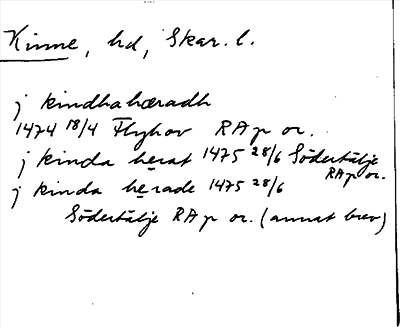 Kinne, hd, Skar. l.
j kindhahæradh
1474 18/4 Flyhov RAp or.
j kinda herat 1475 28/6 Södertälje
RAp or.
j kinda herade 1475 28/6
Södertälje RAp or. (annat brev)